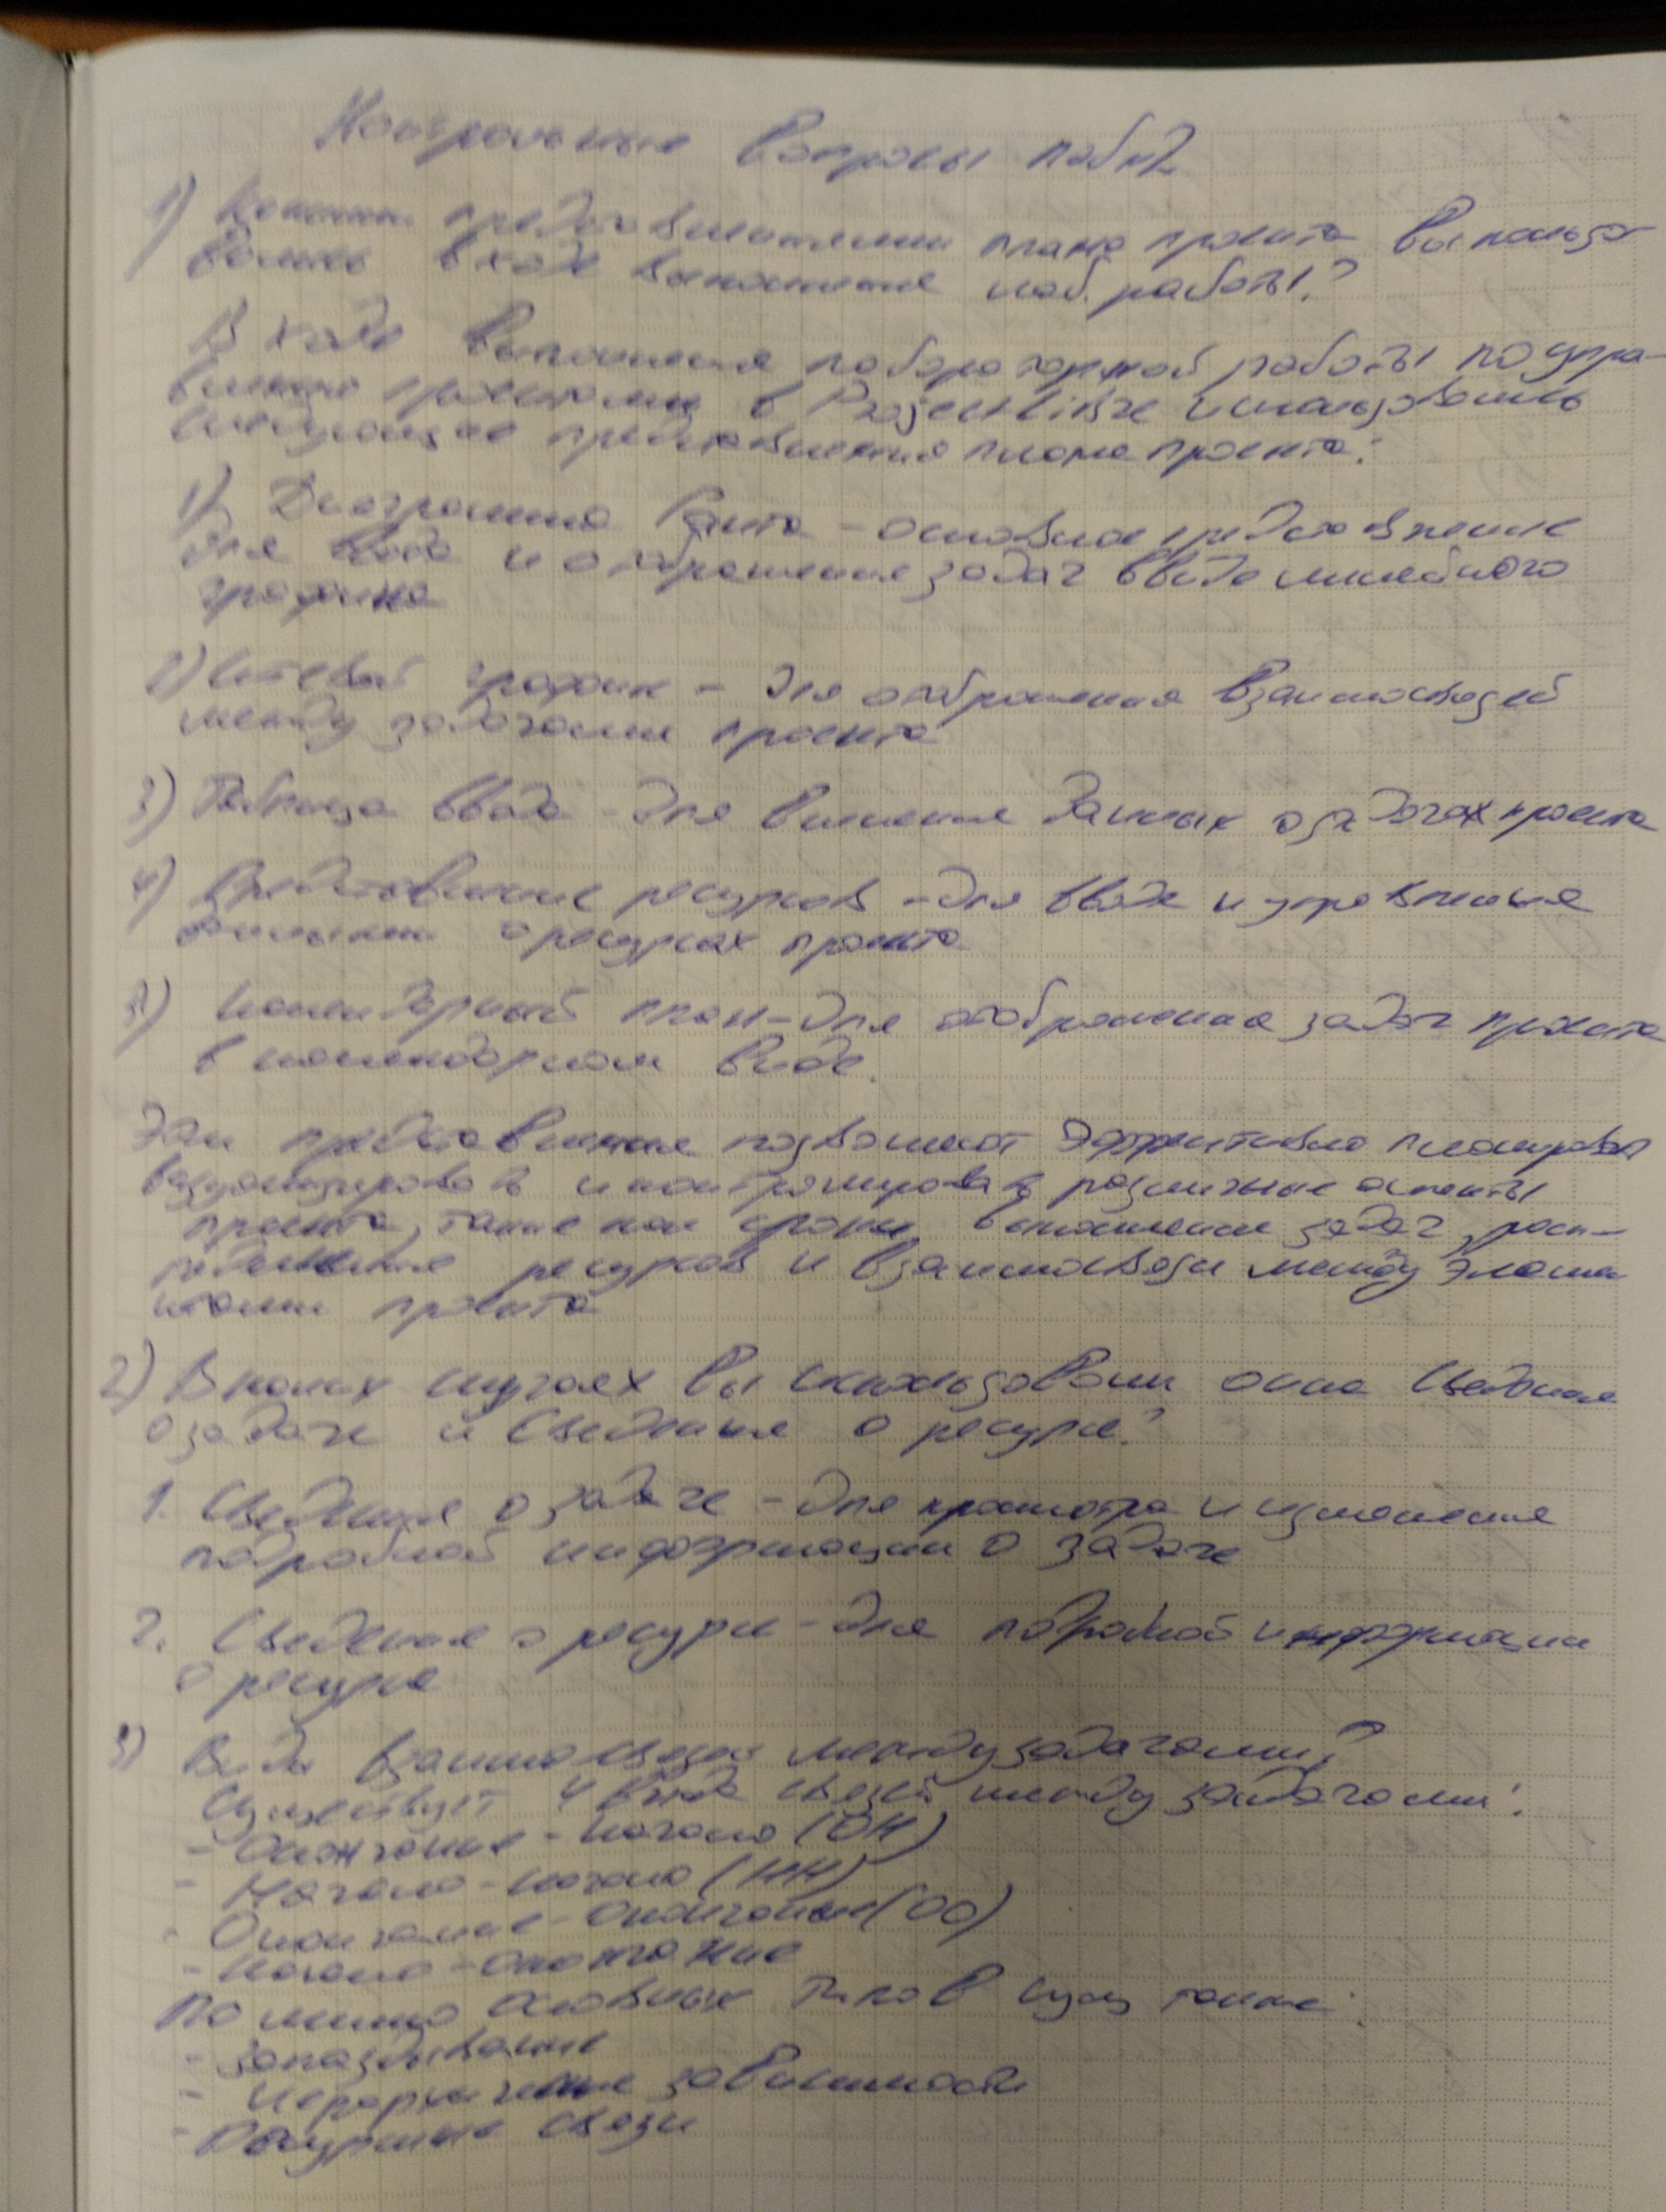 Контрольные вопросы лаб №2
1) Какими представлениями плана проекта Вы пользо-
вались в ходе выполнения лаб. работы?
В ходе выполнения лабораторной работы по упра-
влению проектами в ProjectLibre использовались
следующие представления плана проекта:
1) Диаграмма Ганта - основное представление
для ввода и отображения задач в виде линейного
графика
2) Сетевой график - для отображения взаимосвязей
между задачами проекта
3) Таблица ввода - для внесения данных о задачах проекта
4) Представление ресурсов - для ввода и управления
данными о ресурсах проекта
5) Календарный план - для отображения задач проекта
в календарном виде.
Эти представления позволяют эффективно планировать
визуализировать и контролировать различные аспекты
проекта, такие как сроки выполнения задач, расп-
ределение ресурсов и взаимосвязи между элеме
нтами проекта
2) В каких случаях Вы использовали окна Сведения
о задаче и Сведения о ресурсе?
1. Сведения о задаче - для просмотра и изменения
подробной информации о задаче
2. Сведения о ресурсе - для подробной информации
о ресурсе
3) Виды взаимосвязей между задачами?
Существует 4 вида связей между задачами:
- Окончание - начало (ОН)
- Начало - начало (НН)
- Окончание - окончание (ОО)
- Начало - окончание
Помимо основных типов сущ также:
- запаздывание
- Иерархичные зависимости
- Ресурсные связи